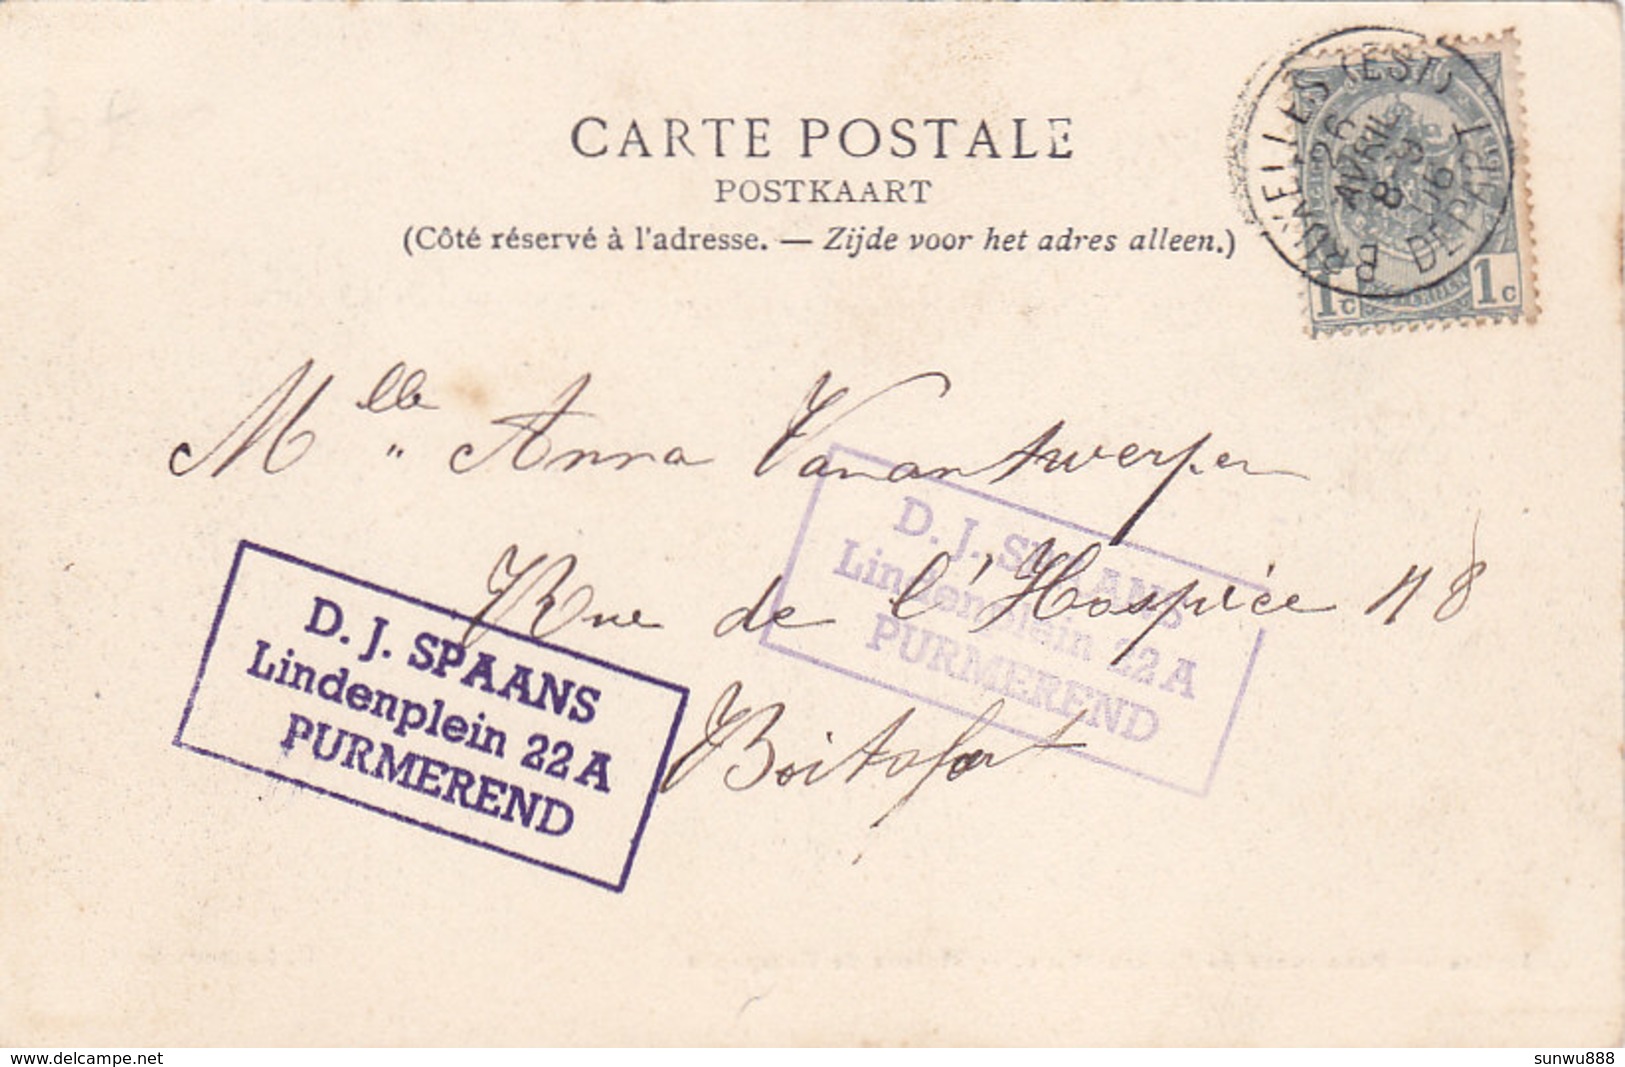 CARTE POSTALE
POSTKAART
(Côté réservé à l'adresse. — Zijde voor het adres alleen.)
BRUXELLES (EST)
26
AVRIL
8
DEPART
1c 1c
Mlle Anna Vanantwerpen
Rue de l'Hospice 118
Boitsfort
D. J. SPAANS
Lindenplein 22A
PURMEREND
D. J. SPAANS
Lindenplein 22A
PURMEREND
www.delcampe.net
sunwu888